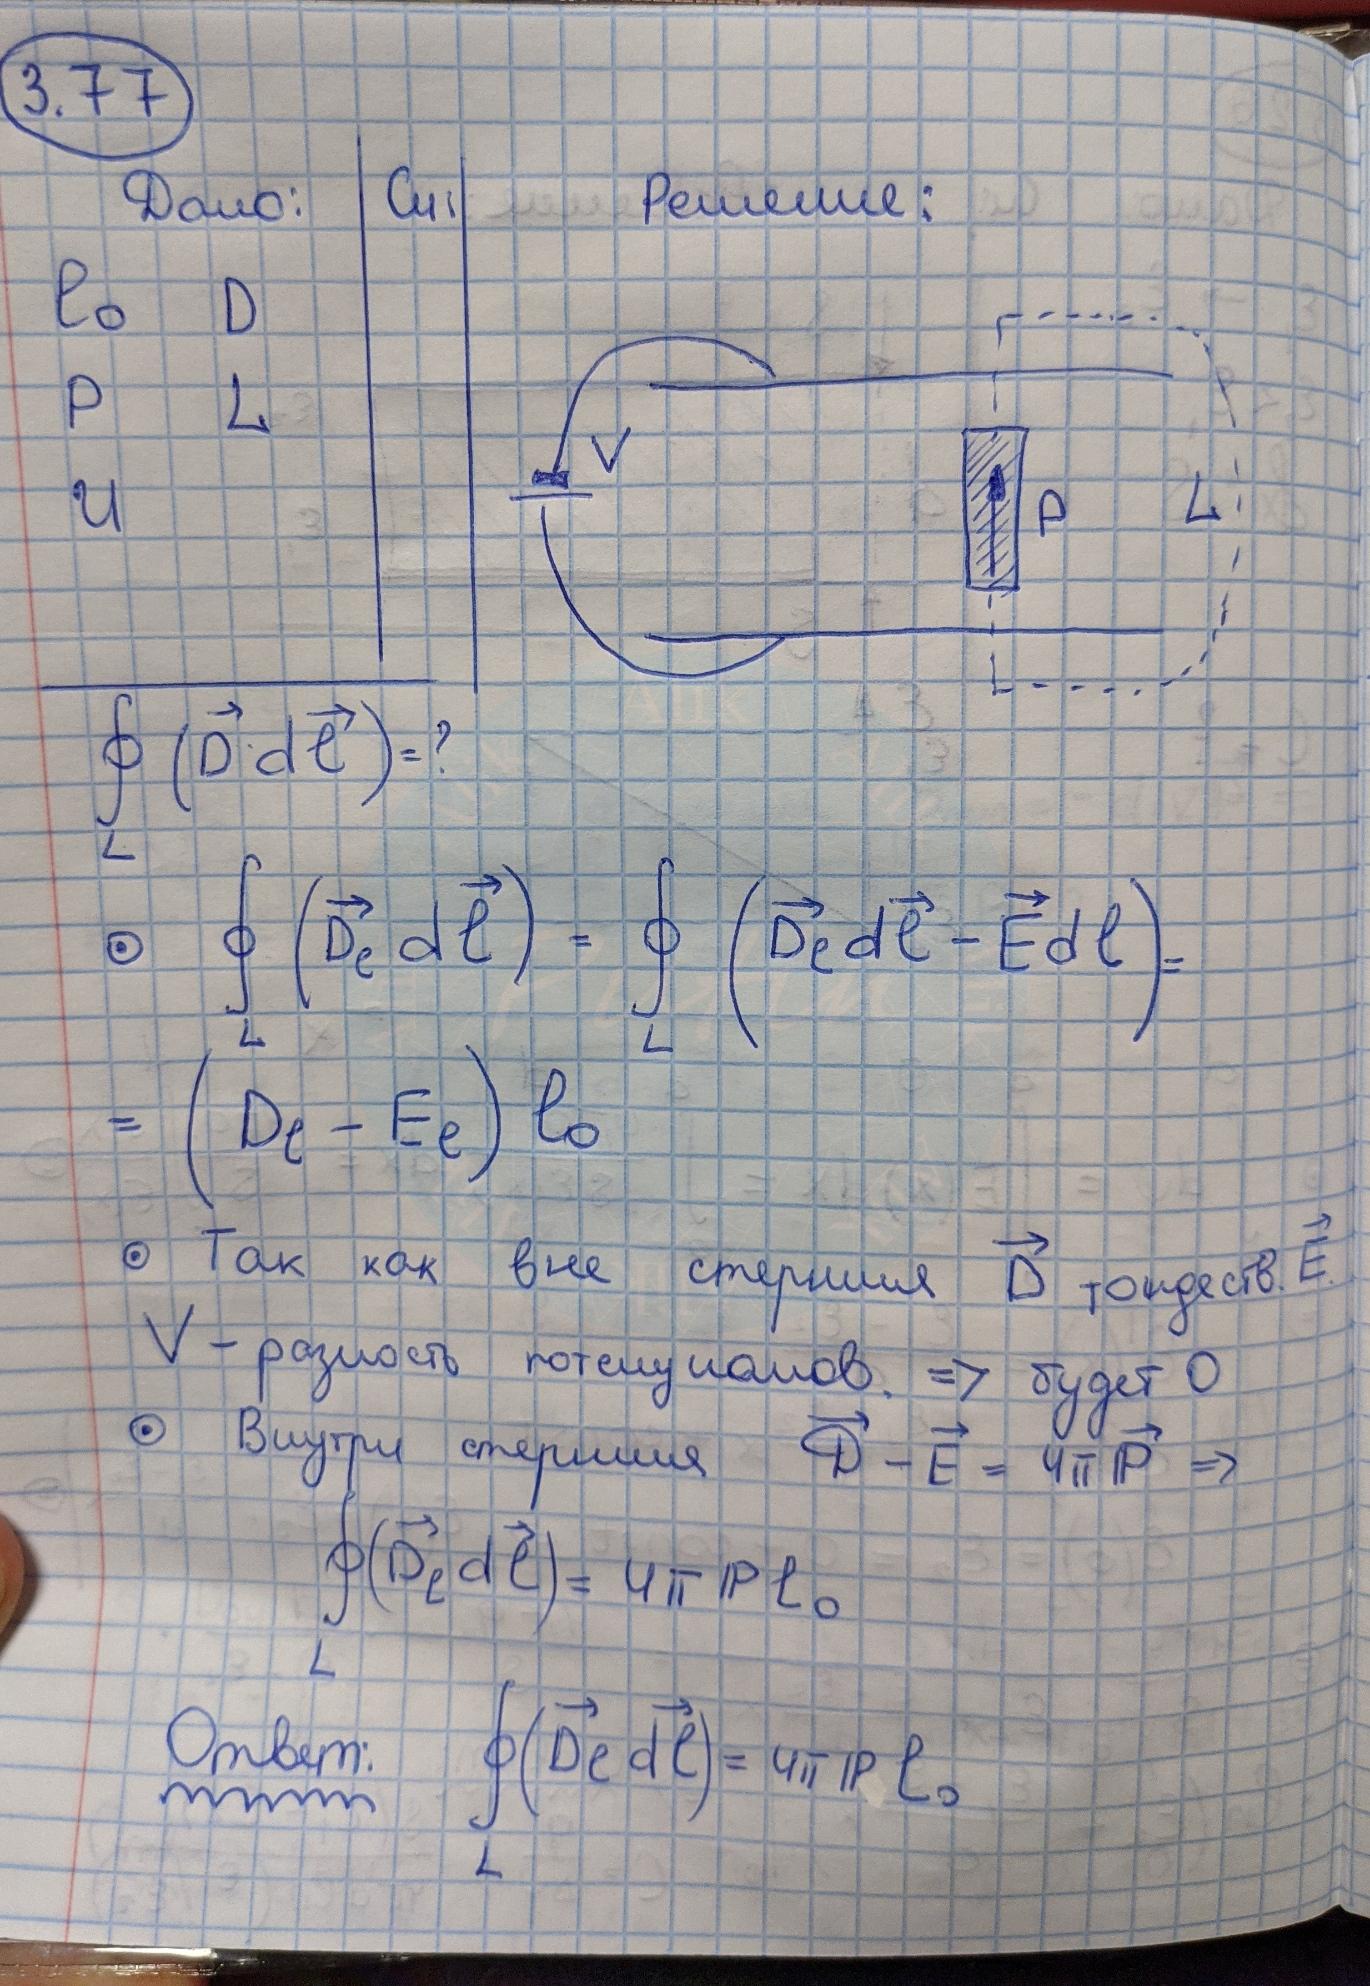 3.77
Дано: Си: Решение:
l₀ D
P L
U
V P L
∮_L (D⃗·dl⃗) = ?
⊙ ∮_L (D⃗ₑ dl⃗) = ∮_L (D⃗ₑ dl⃗ - E⃗ dl) =
= (Dₑ - Eₑ) l₀
⊙ Так как вне стержня D⃗ тождеств. E⃗.
V - разность потенциалов. => будет 0
⊙ Внутри стержня D⃗ - E⃗ = 4πP⃗ =>
∮_L (D⃗ₑ dl⃗) = 4πP l₀
Ответ: ∮_L (D⃗ₑ dl⃗) = 4πP l₀